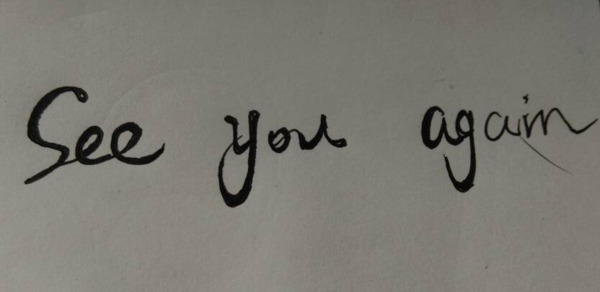 See you again